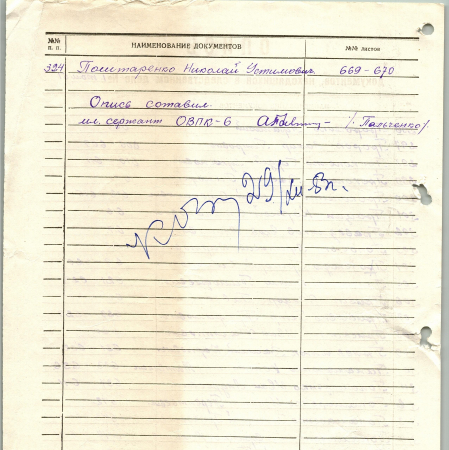 №№ п. п. НАИМЕНОВАНИЕ ДОКУМЕНТОВ №№ листов
324 Поштаренко Николай Устимович 669-670
Опись составил
мл. сержант ОВПК-6 /Пальченко/
29/